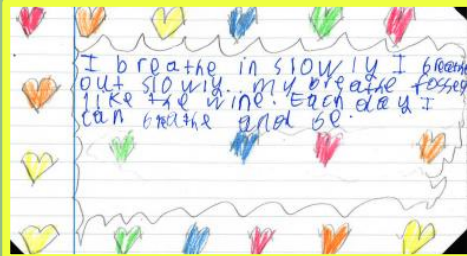 I breathe in slowly I breathe
out slowly. my breathe fosses
like the wine. Each day I
can breathe and be.